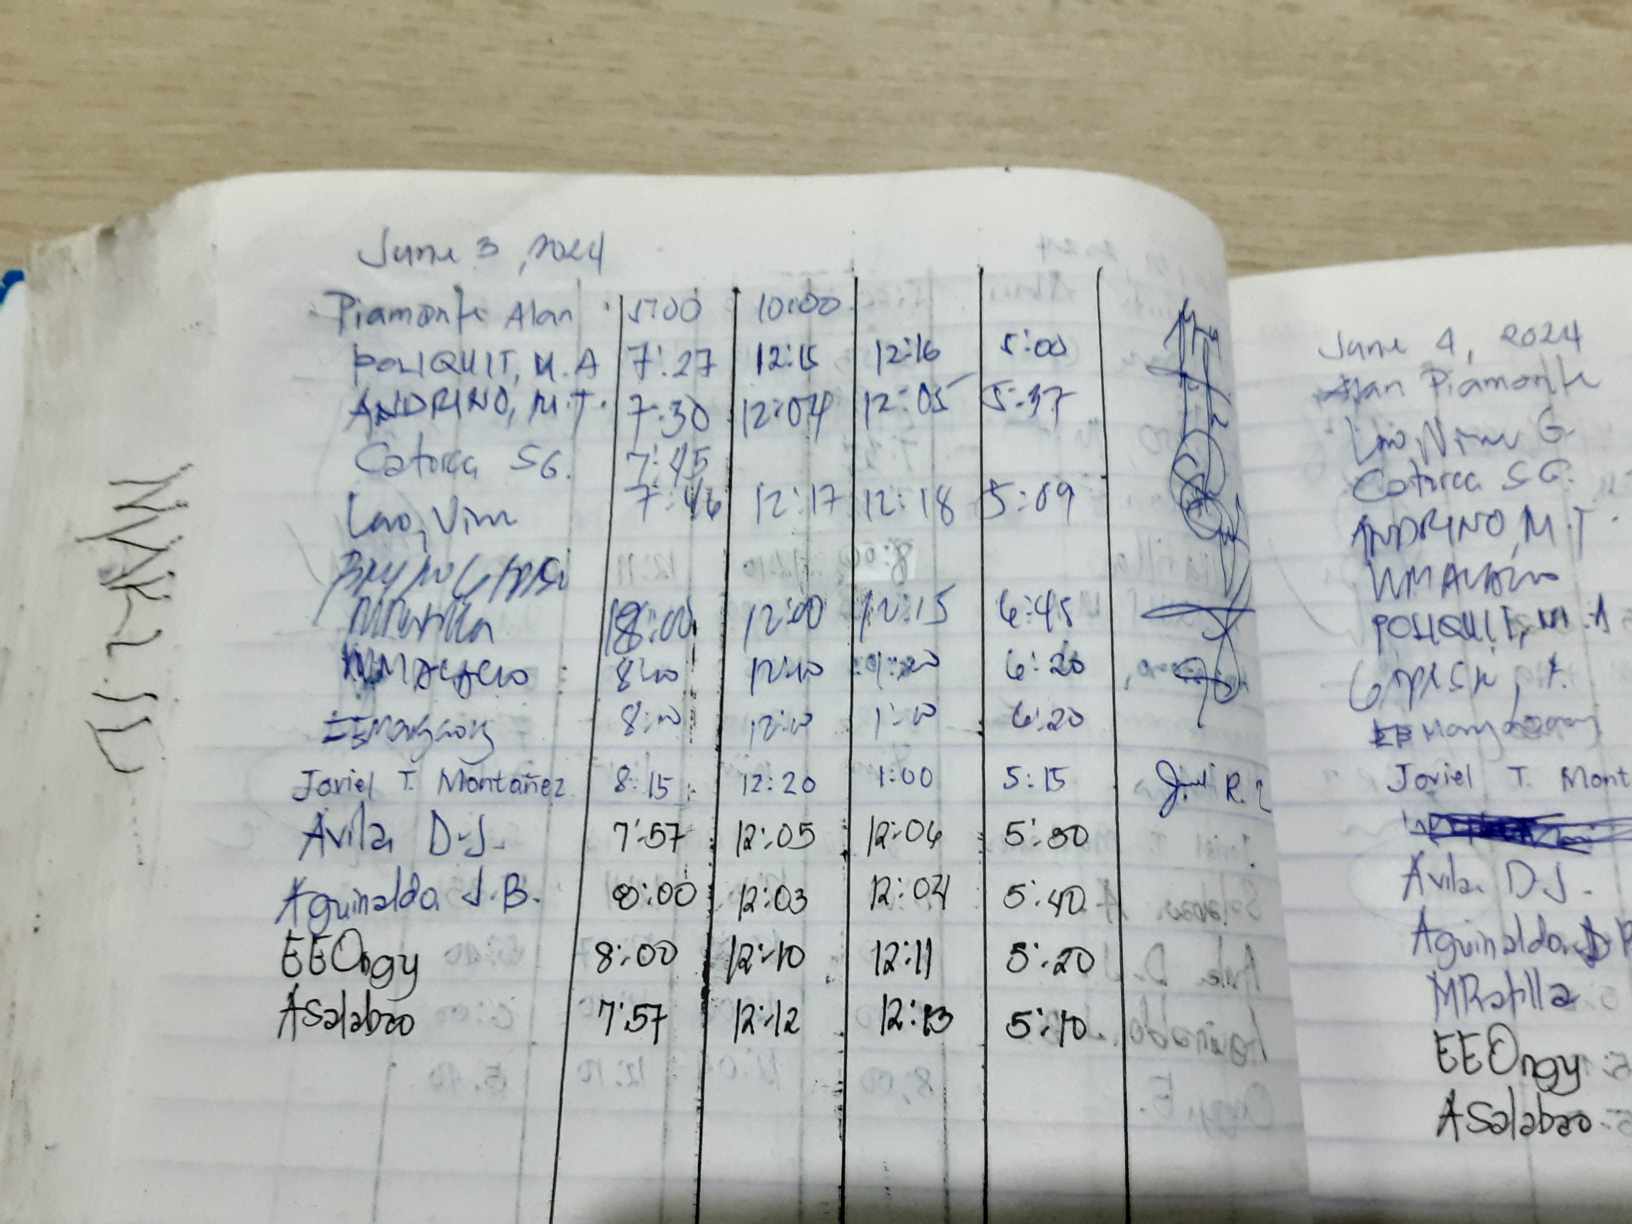 June 3, 2024
Piamonte Alan 5:00 10:00
POLIQUIT, M.A 7:27 12:15 12:16 5:00
ANDRINO, M.T. 7:30 12:04 12:05 5:37
Catorca SG. 7:45
Lao, Vim 7:46 12:17 12:18 5:09
MRatilla 8:00 12:00 12:15 6:45
8:00 12:10 6:20
8:10 12:10 1:10 6:20
Joviel T. Montañez 8:15 12:20 1:00 5:15
Avila D.J. 7:57 12:05 12:06 5:30
Aguinaldo J.B. 8:00 12:03 12:04 5:40
EEOngy 8:00 12:10 12:11 5:20
ASalabao 7:57 12:12 12:13 5:10
June 4, 2024
Alan Piamonte
Lao, G
Catorca SG.
ANDRINO, M.T.
POLIQUIT, M.A
EE
Joviel T. Mont
Avila D.J.
Aguinaldo
MRatilla
EEOngy
ASalabao